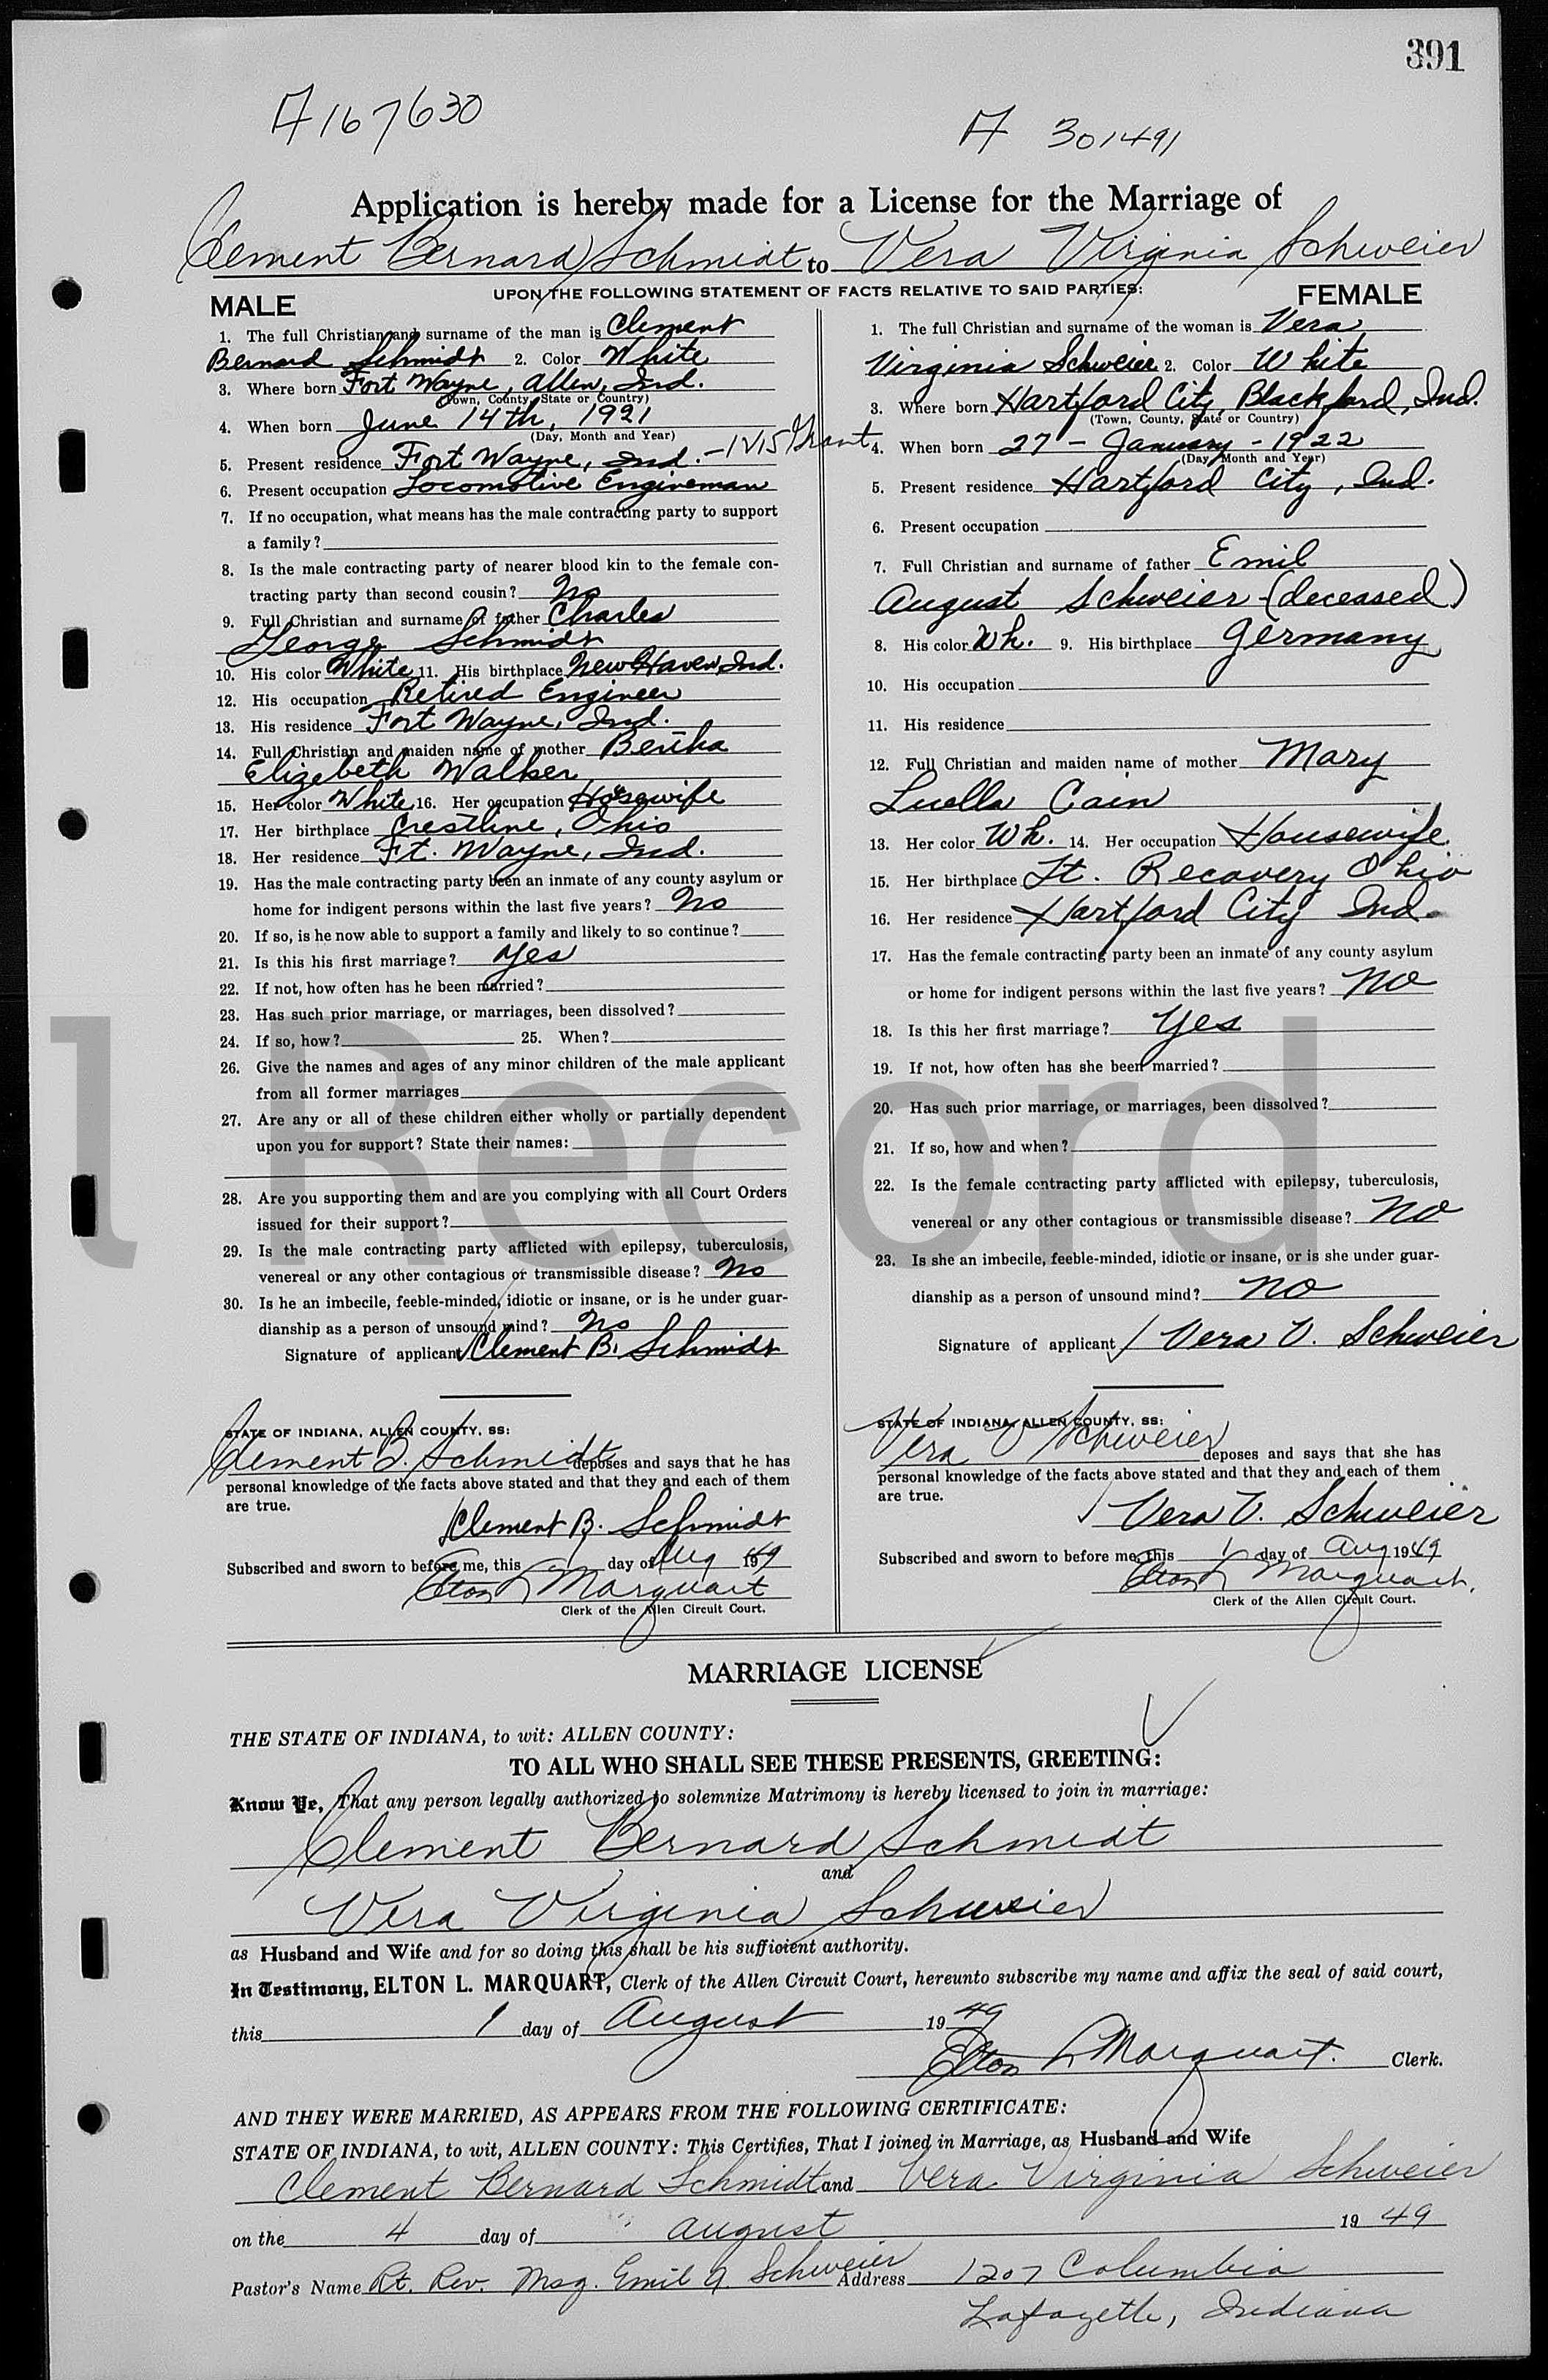 391
A 167630
A 301491
Application is hereby made for a License for the Marriage of
Clement Bernard Schmidt to Vera Virginia Schweier
UPON THE FOLLOWING STATEMENT OF FACTS RELATIVE TO SAID PARTIES:
MALE
1. The full Christian and surname of the man is Clement
Bernard Schmidt 2. Color White
3. Where born Fort Wayne, Allen, Ind.
(Town, County, State or Country)
4. When born June 14th, 1921
(Day, Month and Year)
5. Present residence Fort Wayne, Ind. - 1215 Grant
6. Present occupation Locomotive Engineman
7. If no occupation, what means has the male contracting party to support
a family?
8. Is the male contracting party of nearer blood kin to the female con-
tracting party than second cousin? No
9. Full Christian and surname of father Charles
George Schmidt
10. His color White 11. His birthplace New Haven, Ind.
12. His occupation Retired Engineer
13. His residence Fort Wayne, Ind.
14. Full Christian and maiden name of mother Bertha
Elizebeth Walker
15. Her color White 16. Her occupation Housewife
17. Her birthplace Crestline, Ohio
18. Her residence Ft. Wayne, Ind.
19. Has the male contracting party been an inmate of any county asylum or
home for indigent persons within the last five years? No
20. If so, is he now able to support a family and likely to so continue?
21. Is this his first marriage? Yes
22. If not, how often has he been married?
23. Has such prior marriage, or marriages, been dissolved?
24. If so, how? 25. When?
26. Give the names and ages of any minor children of the male applicant
from all former marriages
27. Are any or all of these children either wholly or partially dependent
upon you for support? State their names:
28. Are you supporting them and are you complying with all Court Orders
issued for their support?
29. Is the male contracting party afflicted with epilepsy, tuberculosis,
venereal or any other contagious or transmissible disease? No
30. Is he an imbecile, feeble-minded, idiotic or insane, or is he under guar-
dianship as a person of unsound mind? No
Signature of applicant Clement B. Schmidt
STATE OF INDIANA, ALLEN COUNTY, SS:
Clement B. Schmidt deposes and says that he has
personal knowledge of the facts above stated and that they and each of them
are true.
Clement B. Schmidt
Subscribed and sworn to before me, this 1 day of Aug 1949
Elton L Marquart
Clerk of the Allen Circuit Court.
FEMALE
1. The full Christian and surname of the woman is Vera
Virginia Schweier 2. Color White
3. Where born Hartford City, Blackford, Ind.
(Town, County, State or Country)
4. When born 27 - January - 1922
(Day, Month and Year)
5. Present residence Hartford City, Ind.
6. Present occupation
7. Full Christian and surname of father Emil
August Schweier - (deceased)
8. His color Wh. 9. His birthplace Germany
10. His occupation
11. His residence
12. Full Christian and maiden name of mother Mary
Luella Cain
13. Her color Wh. 14. Her occupation Housewife
15. Her birthplace Ft. Recovery Ohio
16. Her residence Hartford City Ind.
17. Has the female contracting party been an inmate of any county asylum
or home for indigent persons within the last five years? No
18. Is this her first marriage? Yes
19. If not, how often has she been married?
20. Has such prior marriage, or marriages, been dissolved?
21. If so, how and when?
22. Is the female contracting party afflicted with epilepsy, tuberculosis,
venereal or any other contagious or transmissible disease? No
23. Is she an imbecile, feeble-minded, idiotic or insane, or is she under guar-
dianship as a person of unsound mind? No
Signature of applicant Vera V. Schweier
STATE OF INDIANA, ALLEN COUNTY, SS:
Vera V Schweier deposes and says that she has
personal knowledge of the facts above stated and that they and each of them
are true.
Vera V. Schweier
Subscribed and sworn to before me, this 1 day of Aug 1949
Elton L Marquart.
Clerk of the Allen Circuit Court.
l Record
MARRIAGE LICENSE
THE STATE OF INDIANA, to wit: ALLEN COUNTY:
TO ALL WHO SHALL SEE THESE PRESENTS, GREETING:
Know Ye, That any person legally authorized to solemnize Matrimony is hereby licensed to join in marriage:
Clement Bernard Schmidt
and
Vera Virginia Schweier
as Husband and Wife and for so doing this shall be his sufficient authority.
In Testimony, ELTON L. MARQUART, Clerk of the Allen Circuit Court, hereunto subscribe my name and affix the seal of said court,
this 1 day of August 1949
Elton L Marquart. Clerk.
AND THEY WERE MARRIED, AS APPEARS FROM THE FOLLOWING CERTIFICATE:
STATE OF INDIANA, to wit, ALLEN COUNTY: This Certifies, That I joined in Marriage, as Husband and Wife
Clement Bernard Schmidt and Vera Virginia Schweier
on the 4 day of August 1949
Pastor's Name Rt. Rev. Msg. Emil A. Schweier Address 1207 Columbia
Lafayette, Indiana